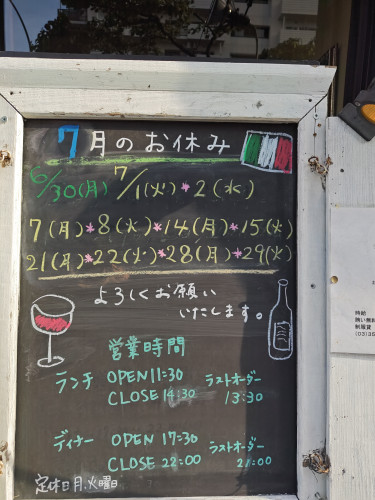 7月のお休み
6/30(月) 7/1(火)*2(水)
7(月)*8(火)*14(月)*15(火)
21(月)*22(火)*28(月)*29(火)
よろしくお願い
いたします。
営業時間
ランチ OPEN 11:30 ラストオーダー
CLOSE 14:30 13:30
ディナー OPEN 17:30 ラストオーダー
CLOSE 22:00 21:00
定休日月.火曜日
時給
賄い無料
制服貸